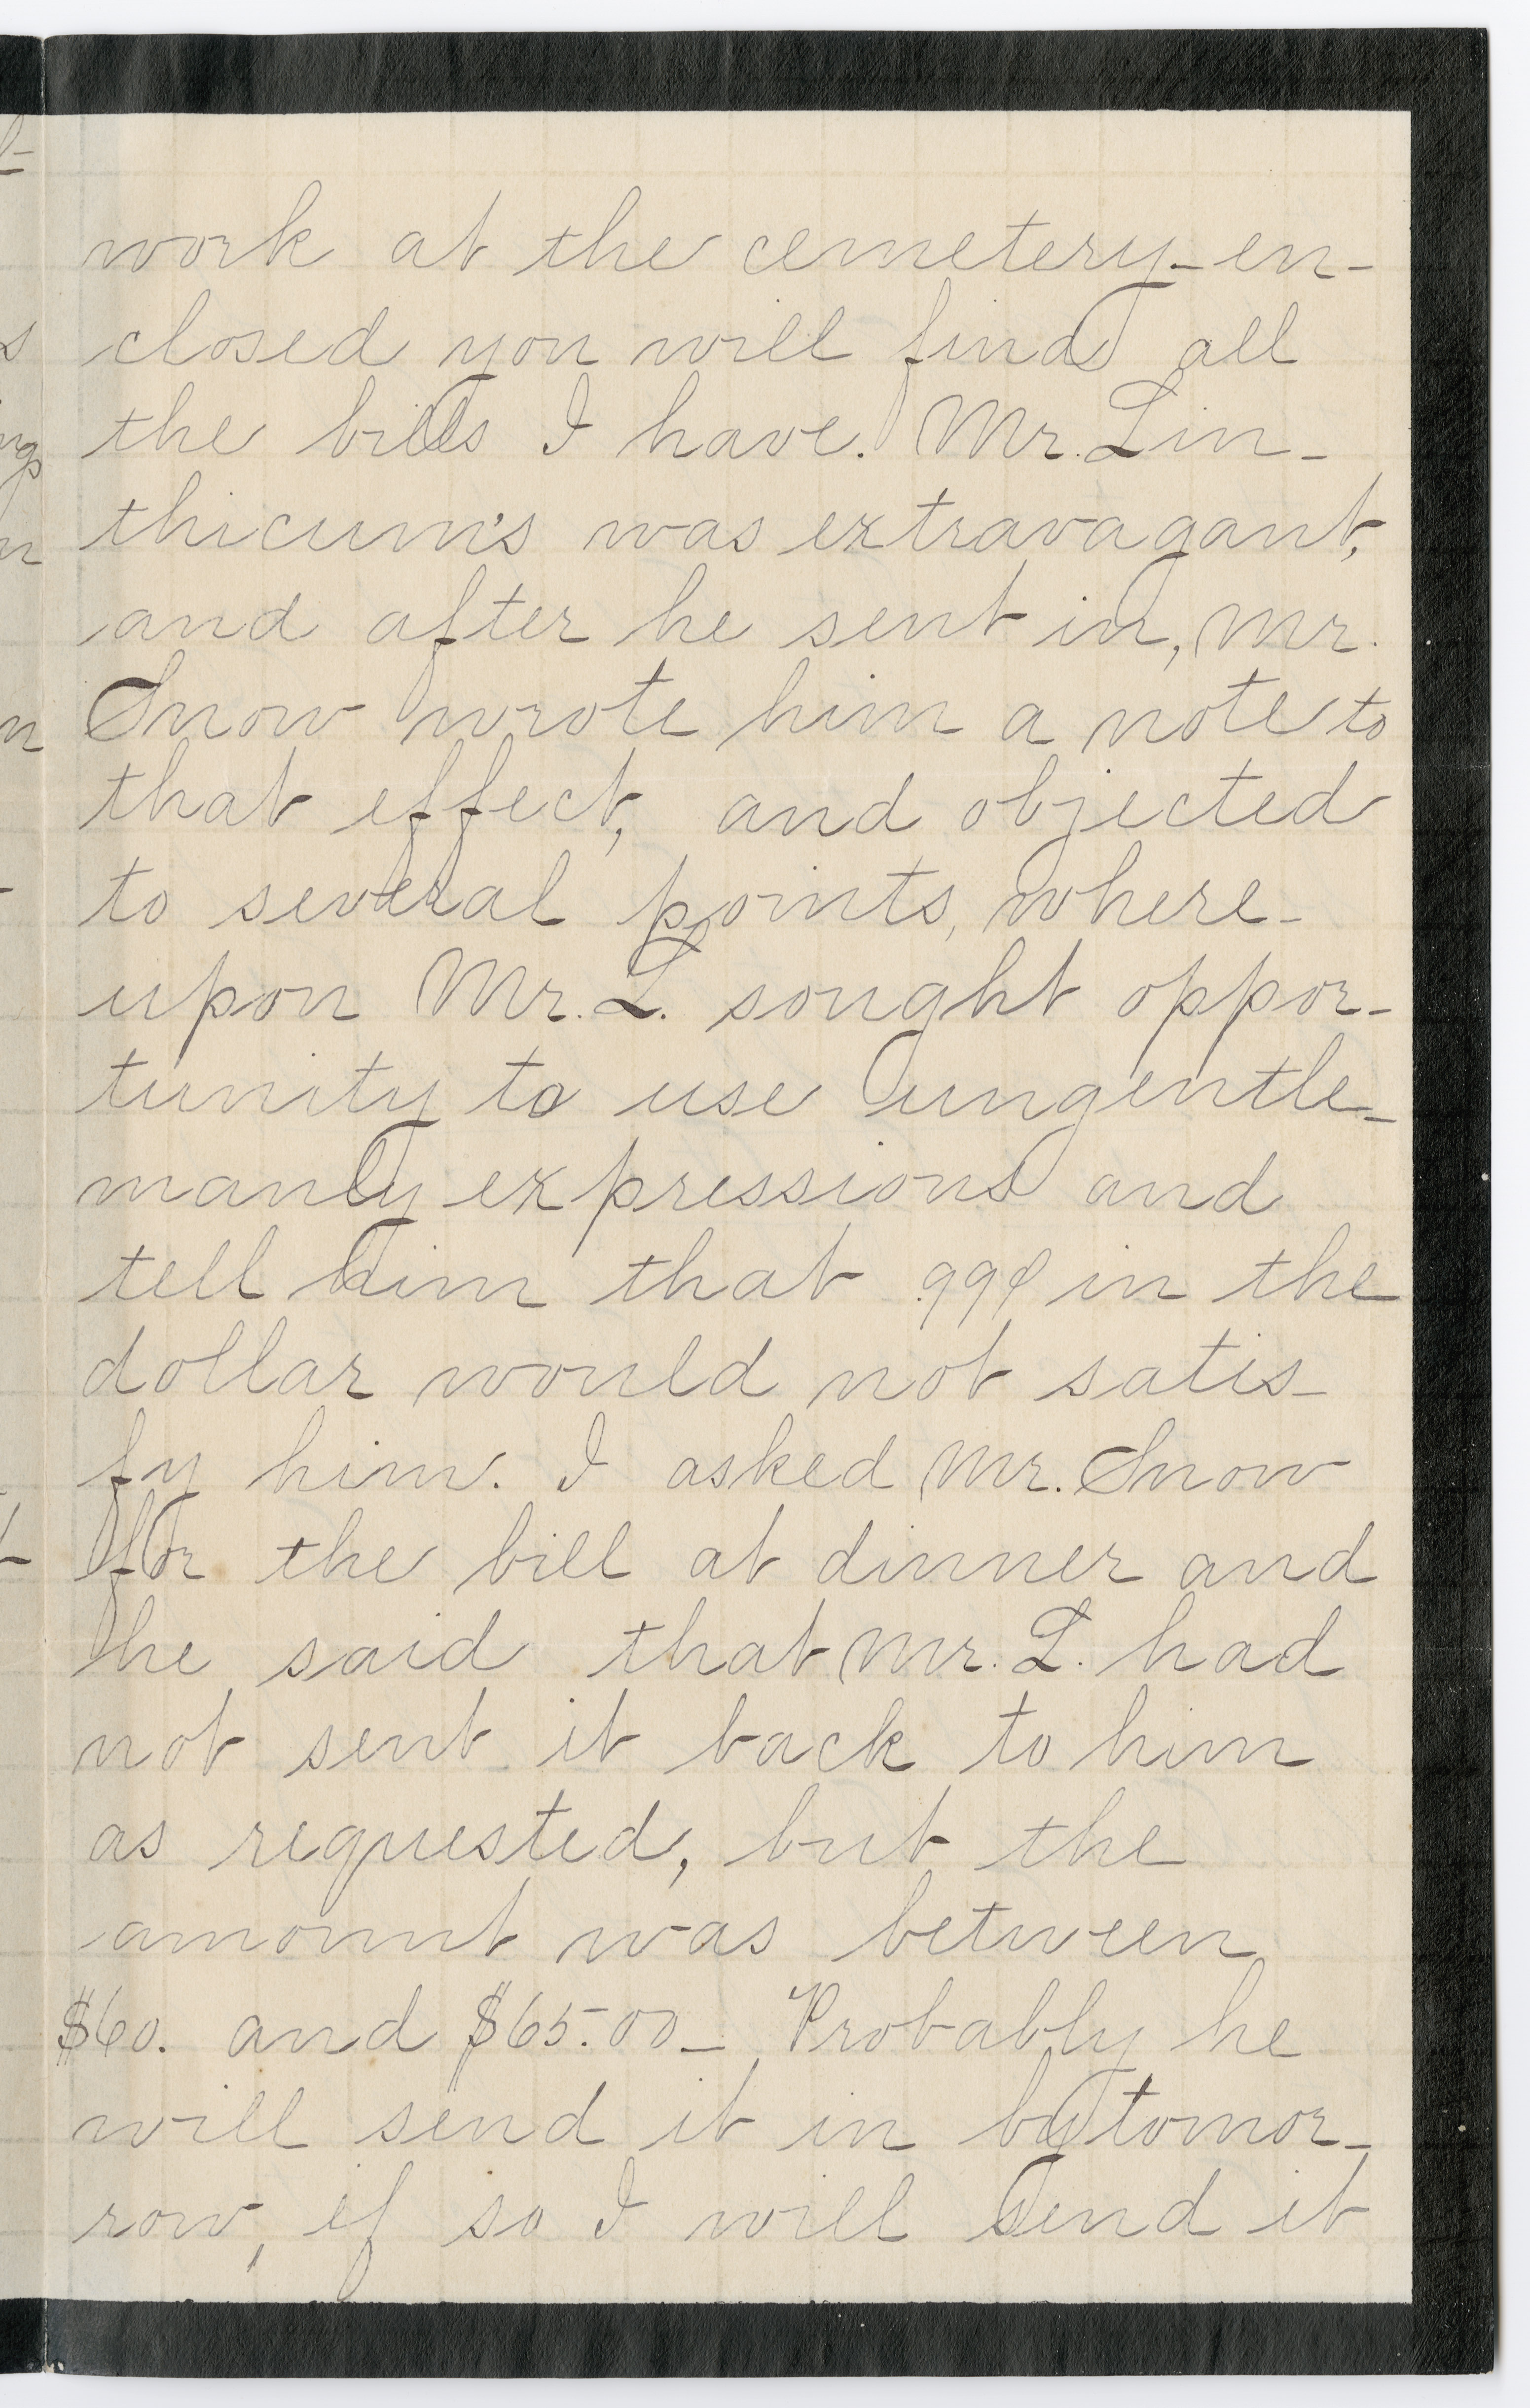 work at the cemetery - en-
closed you will find all
the bills I have. Mr. Lin-
thicum's was extravagant,
and after he sent in, Mr.
Snow wrote him a note to
that effect, and objected
to several points, where-
upon Mr. L. sought oppor-
tunity to use ungentle-
manly expressions and
tell him that 99¢ in the
dollar would not satis-
fy him. I asked Mr. Snow
for the bill at dinner and
he said that Mr. L. had
not sent it back to him
as requested, but the
amount was between
$60. and $65.00 - Probably he
will send it in by tomor-
row, if so I will send it